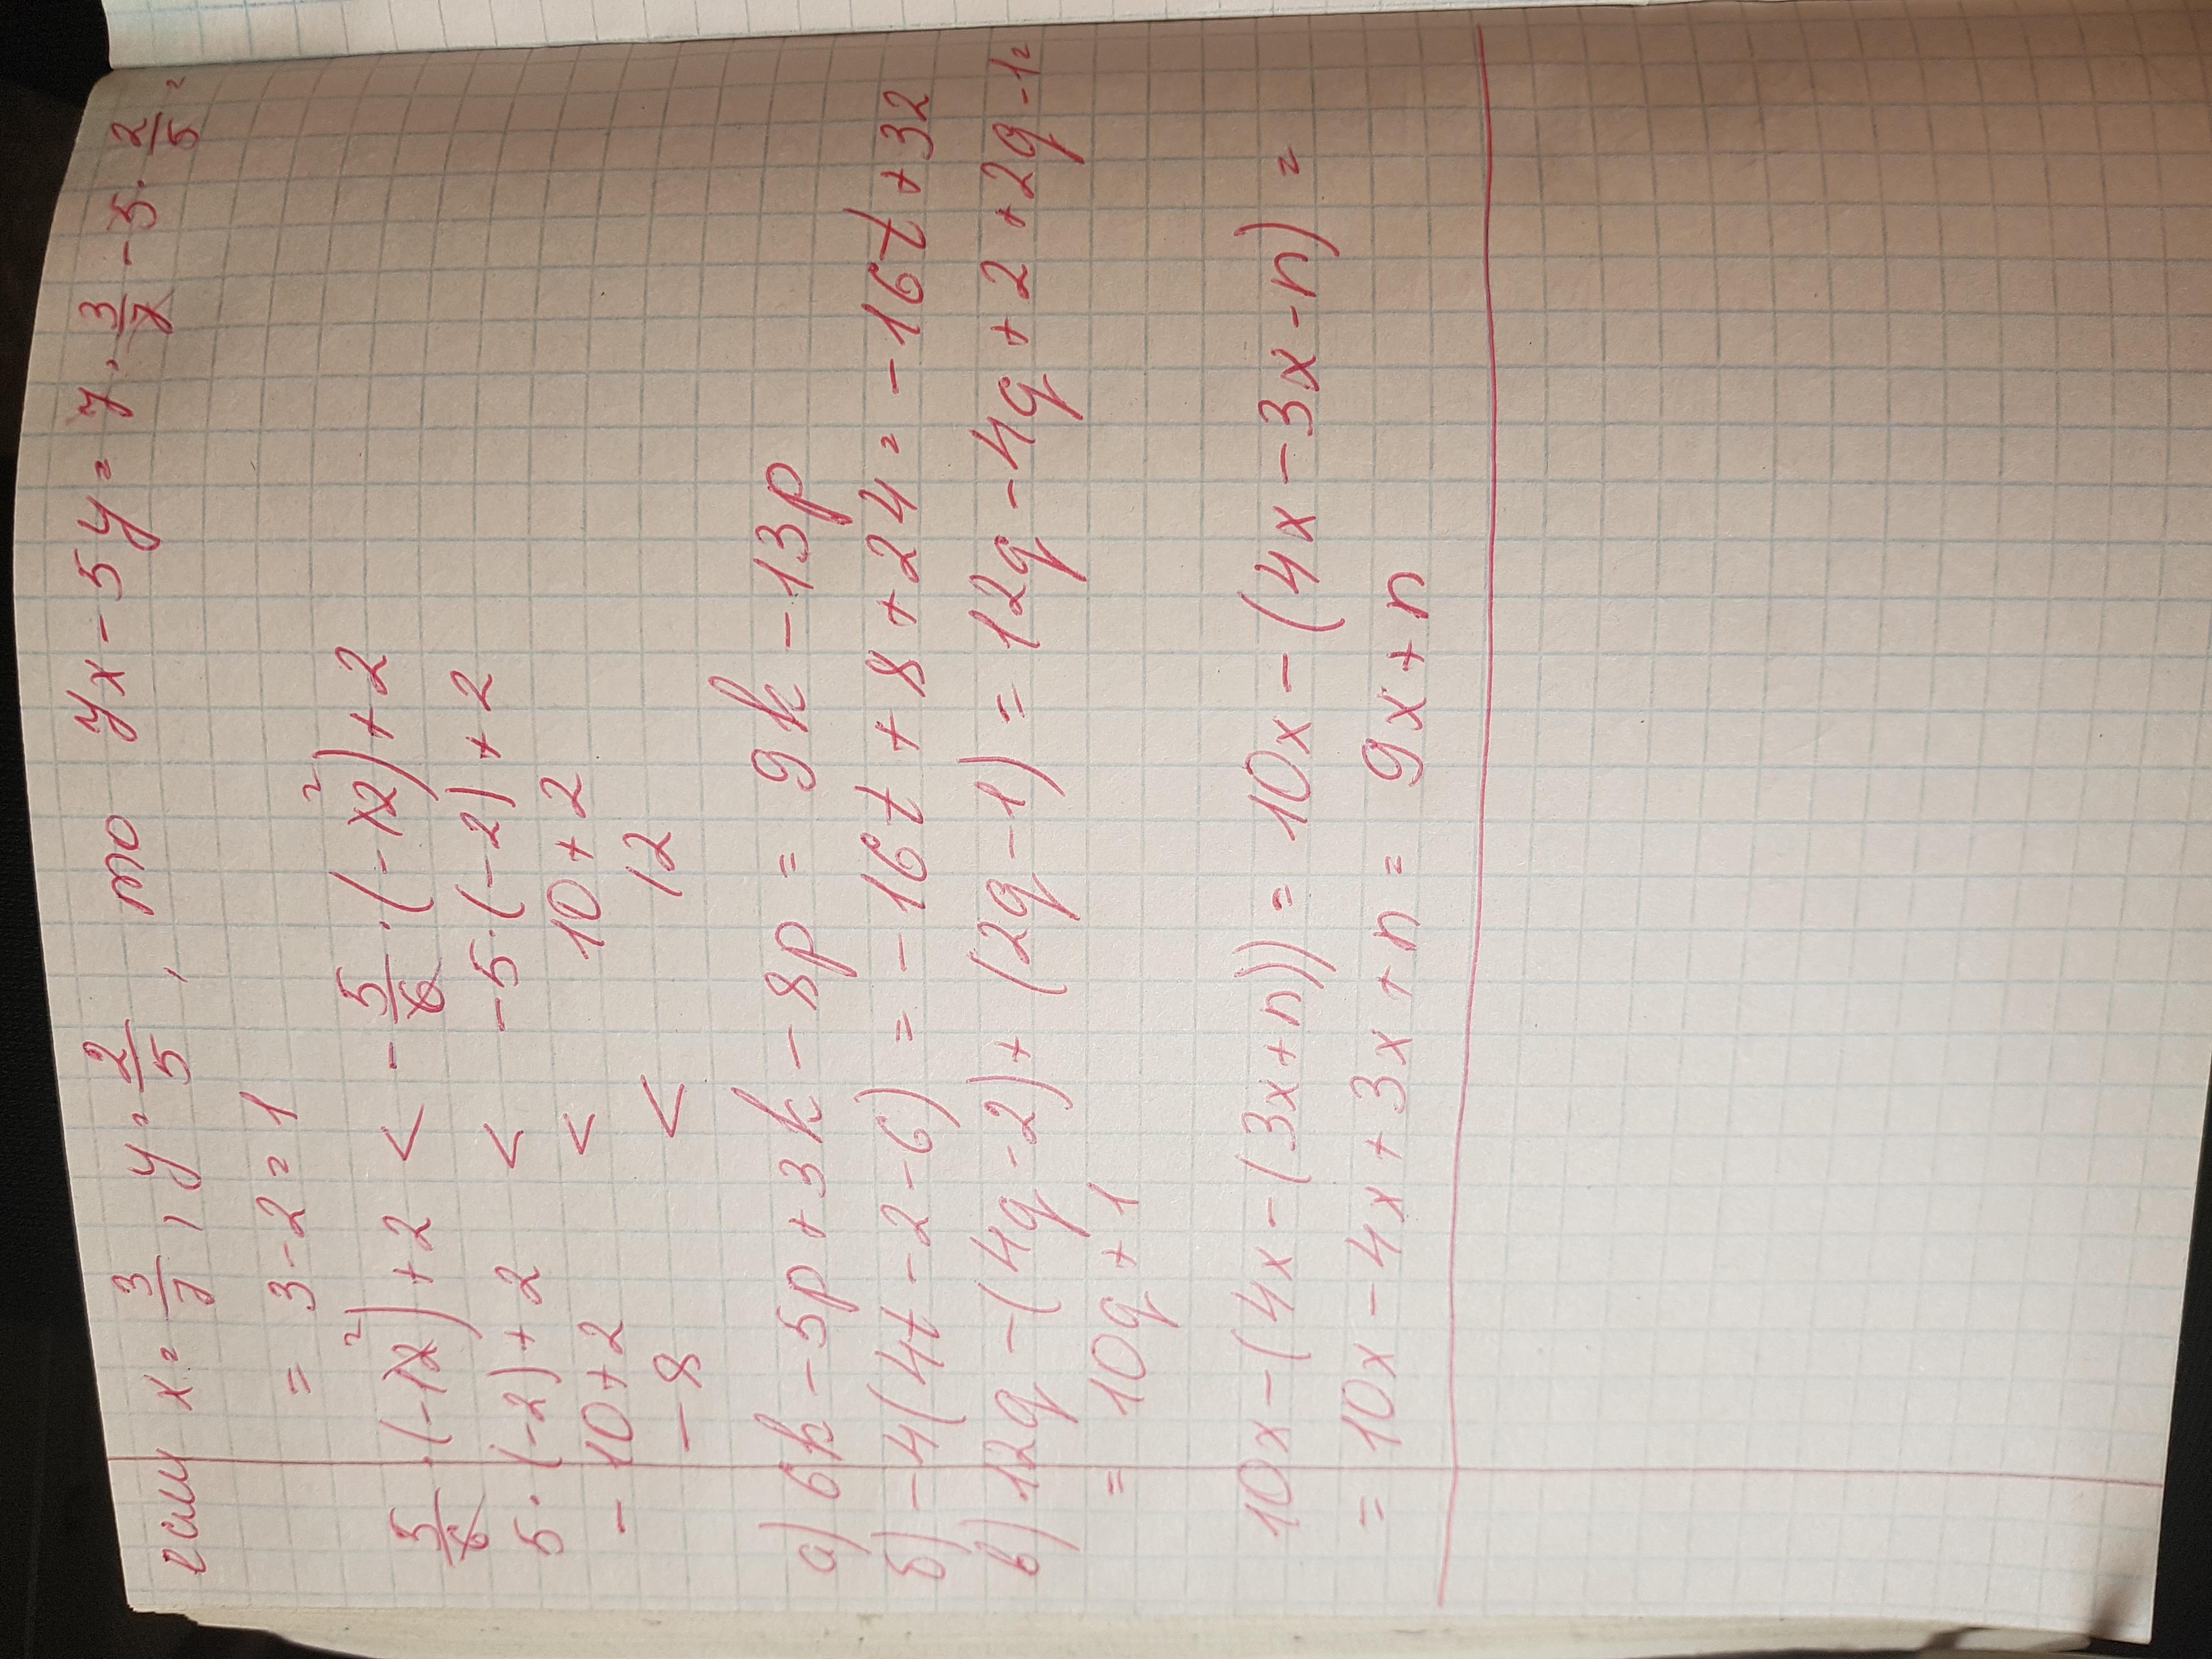 если x = 3/7, y = 2/5, то 7x - 5y = 7 · 3/7 - 5 · 2/5 =
= 3 - 2 = 1
5/6 · (-12²) + 2 < -5/6 · (-12²) + 2
5 · (-2) + 2 < -5 · (-2) + 2
-10 + 2 < 10 + 2
-8 < 12
а) 6k - 5p + 3k - 8p = 9k - 13p
б) -4(4t - 2 - 6) = -16t + 8 + 24 = -16t + 32
в) 12q - (4q - 2) + (2q - 1) = 12q - 4q + 2 + 2q - 1 =
= 10q + 1
10x - (4x - (3x + n)) = 10x - (4x - 3x - n) =
= 10x - 4x + 3x + n = 9x + n